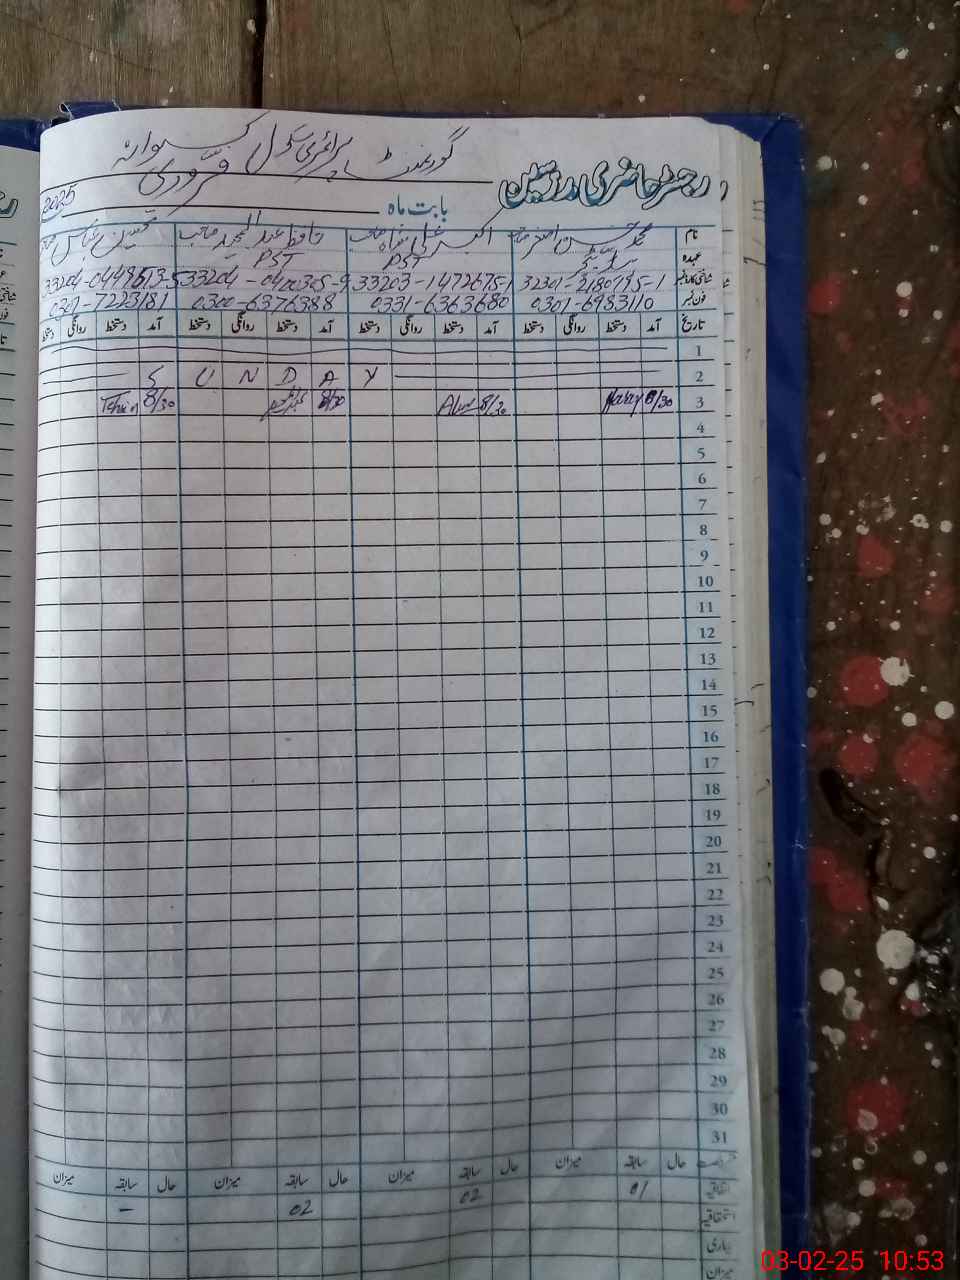 گورنمنٹ پرائمری سکول
رجسٹر حاضری مدرسین
بابت ماہ فروری 2025
نام محمد حسن اصغر صاحب اکبر علی شاہ صاحب حافظ عبدالمجید صاحب تحسین عباس
عہدہ PST PST
شناختی کارڈ نمبر 32301-2180795-1 33203-1472675-1 33204-0400305-9 33204-0448513-5
فون نمبر 0301-6983110 0331-6363680 0300-6376388 0301-7223181
تاریخ آمد دستخط روانگی دستخط آمد دستخط روانگی دستخط آمد دستخط روانگی دستخط آمد دستخط روانگی دستخط
1
2 S U N D A Y
3 8/30 8/30 8/30 8/30
4
5
6
7
8
9
10
11
12
13
14
15
16
17
18
19
20
21
22
23
24
25
26
27
28
29
30
31
حال سابقہ میزان حال سابقہ میزان حال سابقہ میزان حال سابقہ میزان
اتفاقیہ 01 02 02 -
استحقاقیہ
بیماری
میزان
03-02-25 10:53